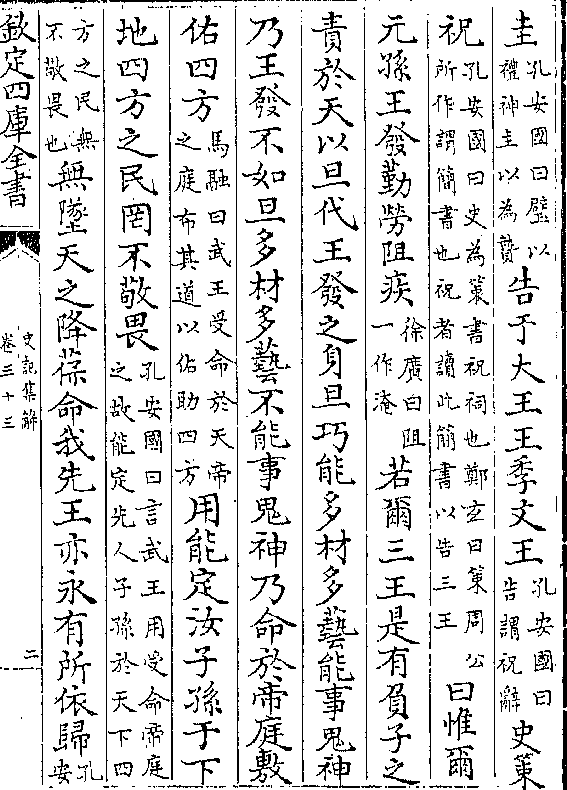 圭孔安國曰璧以禮神圭以為贄告于大王王季文王孔安國曰告謂祝辭史策
祝孔安國曰史為策書祝祠也鄭玄曰策周公所作謂簡書也祝者讀此簡書以告三王曰惟爾
元孫王發勤勞阻疾徐廣曰阻一作淹若爾三王是有負子之
責於天以旦代王發之身旦巧能多材多藝能事鬼神
乃王發不如旦多材多藝不能事鬼神乃命於帝庭敷
佑四方馬融曰武王受命於天帝之庭布其道以佑助四方用能定汝子孫于下
地四方之民罔不敬畏孔安國曰言武王用受命帝庭之故能定先人子孫於天下四
方之民無不敬畏也無墜天之降葆命我先王亦永有所依歸孔安
欽定四庫全書
史記集解
卷三十三
二